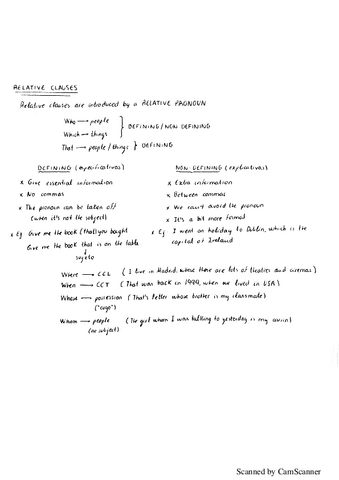 RELATIVE CLAUSES
Relative clauses are introduced by a RELATIVE PRONOUN
Who → people
Which → things } DEFINING / NON DEFINING
That → people / things } DEFINING
DEFINING (especificativas)
x Give essential information
x No commas
x The pronoun can be taken off
(when it's not the subject)
x Eg Give me the book (that) you bought
Give me the book that is on the table
↓
sujeto
NON-DEFINING (explicativas)
x Extra information
x Between commas
x We can't avoid the pronoun
x It's a bit more formal
x Eg I went on holiday to Dublin, which is the
capital of Ireland
Where → CCL (I live in Madrid, where there are lots of theatres and cinemas)
When → CCT (That was back in 1999, when we lived in USA)
Whose → possession (That's Peter whose brother is my classmate)
("cuyo")
Whom → people (The girl whom I was talking to yesterday is my cousin)
(no subject)
Scanned by CamScanner